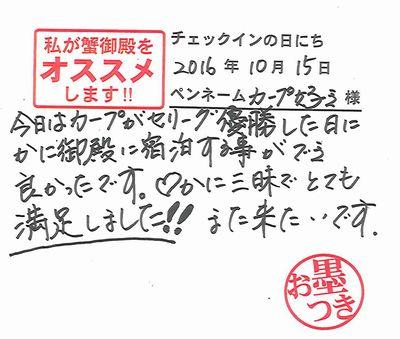 私が蟹御殿を
オススメ
します!!
チェックインの日にち
2016年10月15日
ペンネーム カープ好き 様
今日はカープがセリーグ優勝した日に
かに御殿に宿泊する事ができ
良かったです。♡かに三昧でとても
満足しました!! また来たいです。
お墨つき